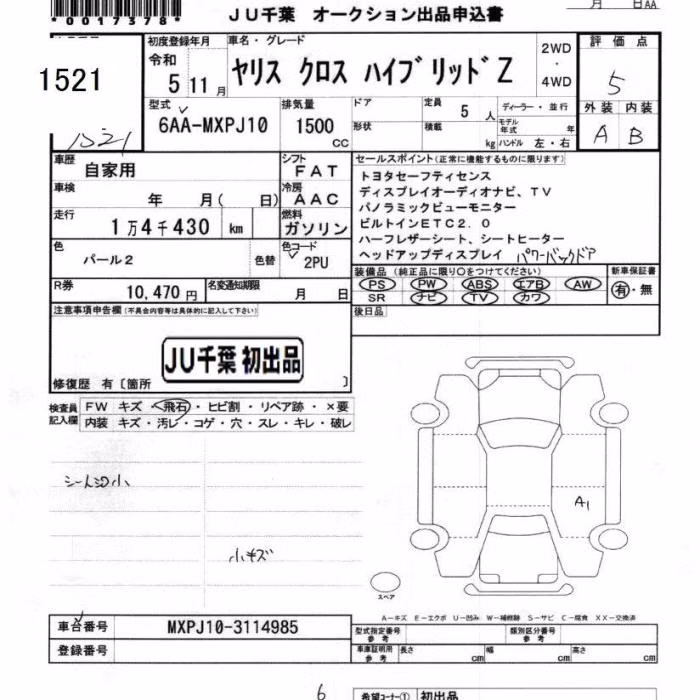 *0017378*
JU千葉 オークション出品申込書
月 日AA
1521
1521
初度登録年月
令和
5 11月
車名・グレード
ヤリス クロス ハイブリッドZ
2WD
・
4WD
評価点
5
外装 内装
A B
型式
6AA-MXPJ10
排気量
1500
cc
ドア
形状
定員
5 人
積載
kg
ディーラー・並行
モデル年式
年
ハンドル 左・右
車歴
自家用
シフト
FAT
車検
年 月( 日)
冷房
AAC
走行
1万4千430 km
燃料
ガソリン
色
パール2
色替
色コード
2PU
R券
10,470円
名変通知期限
月 日
セールスポイント(正常に機能するものに限ります)
トヨタセーフティセンス
ディスプレイオーディオナビ、TV
パノラミックビューモニター
ビルトインETC2.0
ハーフレザーシート、シートヒーター
ヘッドアップディスプレイ パワーバックドア
装備品(純正品に限り○をつけてください)
PS PW ABS エアB AW
SR ナビ TV カワ
新車保証書
有・無
後日品
注意事項申告欄(不具合内容等は具体的に記入して下さい)
JU千葉 初出品
修復歴 有〔箇所 〕
検査員記入欄
FW キズ・飛石・ヒビ割・リペア跡・×要
内装 キズ・汚レ・コゲ・穴・スレ・キレ・破レ
小キズ
A1
スペア
A-キズ E-エクボ U-凹み W-補修跡 S-サビ C-腐食 XX-交換済
車台番号
MXPJ10-3114985
登録番号
型式指定番号
参考
類別区分番号
参考
車庫証明用
参考
長さ cm
幅 cm
高さ cm
6
希望コーナー① 初出品